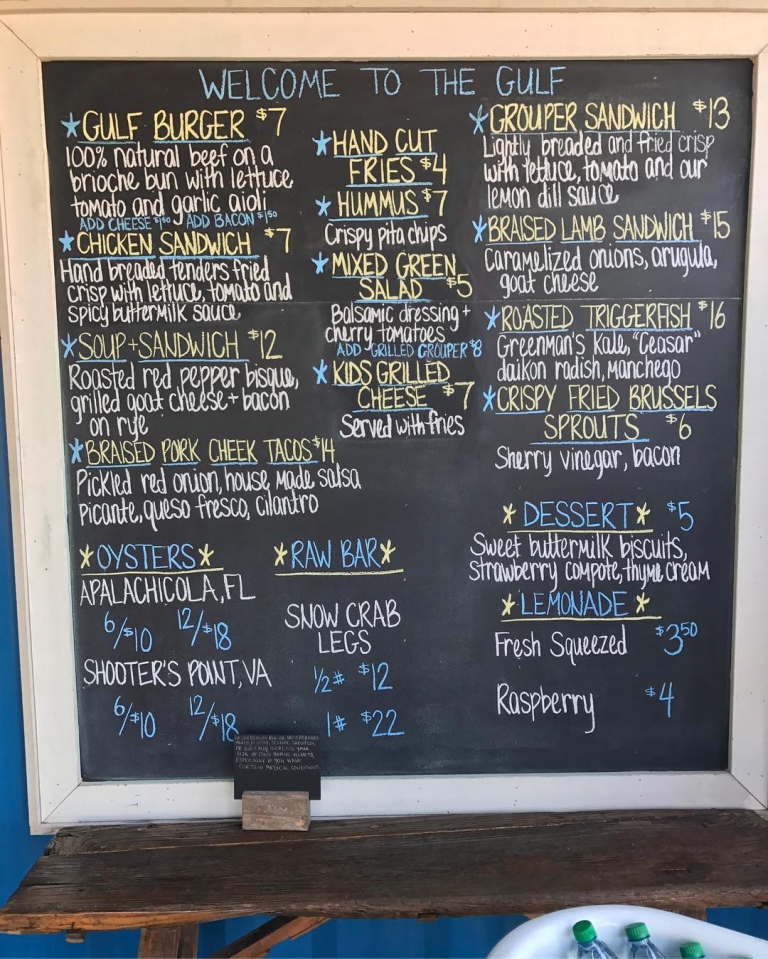 WELCOME TO THE GULF
GULF BURGER $7
100% natural beef on a
brioche bun with lettuce,
tomato and garlic aioli
ADD CHEESE $1.50 ADD BACON $1.50
CHICKEN SANDWICH $7
Hand breaded tenders fried
crisp with lettuce, tomato and
spicy buttermilk sauce
SOUP + SANDWICH $12
Roasted red pepper bisque,
grilled goat cheese + bacon
on rye
BRAISED PORK CHEEK TACOS $14
Pickled red onion, house made salsa
picante, queso fresco, cilantro
HAND CUT
FRIES $4
HUMMUS $7
Crispy pita chips
MIXED GREEN
SALAD $5
Balsamic dressing +
cherry tomatoes
ADD GRILLED GROUPER $8
KIDS GRILLED
CHEESE $7
Served with fries
GROUPER SANDWICH $13
Lightly breaded and fried crisp
with lettuce, tomato and our
lemon dill sauce
BRAISED LAMB SANDWICH $15
Caramelized onions, arugula,
goat cheese
ROASTED TRIGGERFISH $16
Greenman's Kale, "Ceasar"
daikon radish, manchego
CRISPY FRIED BRUSSELS
SPROUTS $6
Sherry vinegar, bacon
OYSTERS
APALACHICOLA, FL
6/$10 12/$18
SHOOTER'S POINT, VA
6/$10 12/$18
RAW BAR
SNOW CRAB
LEGS
1/2# $12
1# $22
DESSERT $5
Sweet buttermilk biscuits,
strawberry compote, thyme cream
LEMONADE
Fresh Squeezed $3.50
Raspberry $4